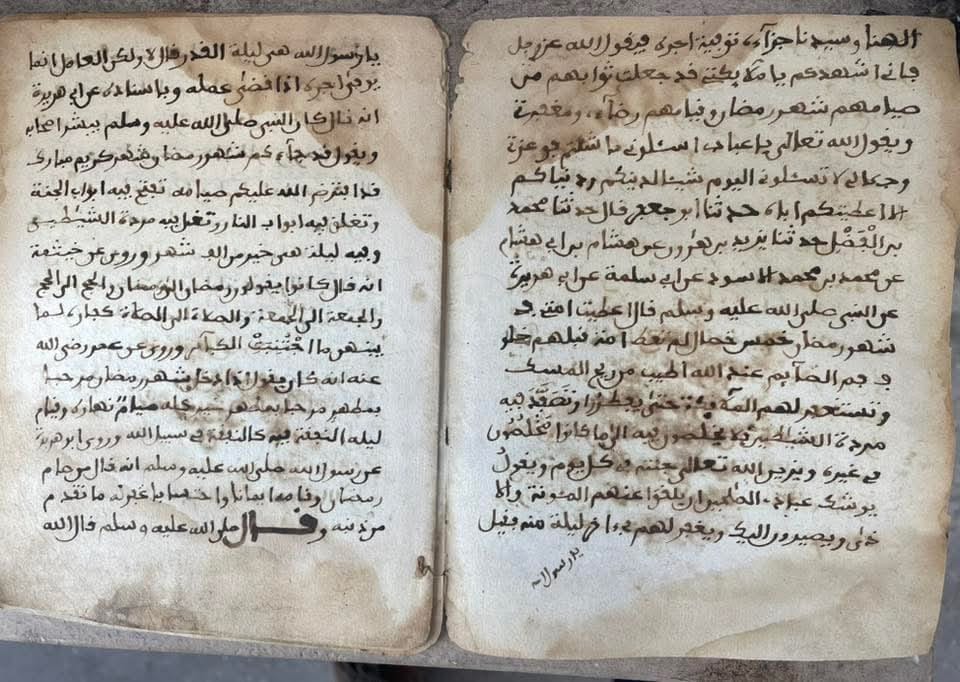 الهنا وسيدنا جزآءه توفية اجره فيقول الله عز وجل
فاني اشهدكم يا ملايكتي قد جعلت ثوابهم من
صيامهم شهر رمضان وقيامهم رضآءي ومغفرتي
ويقول الله تعالى يا عبادي اسئلوني ما شئتم فو عزتي
وجلالي لا تسئلوني اليوم شيئا لدينكم ودنياكم
الا اعطيتكم اياه حدثنا ابو جعفر قال حدثنا محمد
بن الفضل حدثنا يزيد بن هرون عن هشام بن ابي هشام
عن محمد بن محمد الاسود عن ابي سلمة عن ابي هريرة
عن النبي صلى الله عليه وسلم قال اعطيت امتي في
شهر رمضان خمس خصال لم تعط امة قبلهم خلوف
فم الصآيم عند الله اطيب من ريح المسك
وتستغفر لهم الملآيكة حتى يفطروا وتصفد فيه
مردة الشيطين فلا يخلصون فيه الى ما كانوا يخلصون
في غيره ويزين الله تعالى جنته في كل يوم ويقول
يوشك عبادي الصلحين ان يلقوا عنهم المئونة والا
ذى ويصيرون اليك ويغفر لهم في ءاخر ليلة منه فقيل
يا رسول الله
يا رسول الله هي ليلة القدر قال لا ولكن العامل انما
يوفى اجره اذا قضى عمله وباسناده عن ابي هريرة
انه قال كان النبي صلى الله عليه وسلم يبشر اصحابه
ويقول قد جآءكم شهر رمضان شهر كريم مبارك
قد افترض الله عليكم صيامه تفتح فيه ابواب الجنة
وتغلق فيه ابواب النار وتغل فيه مردة الشيطين
وفيه ليلة هي خير من الف شهر وروي عن خيثمة
انه قال كانوا يقولون رمضان الى رمضان والحج الى الحج
والجمعة الى الجمعة والصلاة الى الصلاة كفارة لما
بينهن ما اجتنبت الكبآئر وروي عن عمر رضي الله
عنه انه كان يقول اذا دخل شهر رمضان مرحبا
بمطهر مرحبا بمطهر خير كله صيام نهاره وقيام
ليله النفقة فيه كالنفقة في سبيل الله وروى ابو هريرة
عن رسول الله صلى الله عليه وسلم انه قال من صام
رمضان وقامه ايمانا واحتسابا غفر له ما تقدم
من ذنبه وقال صلى الله عليه وسلم قال الله